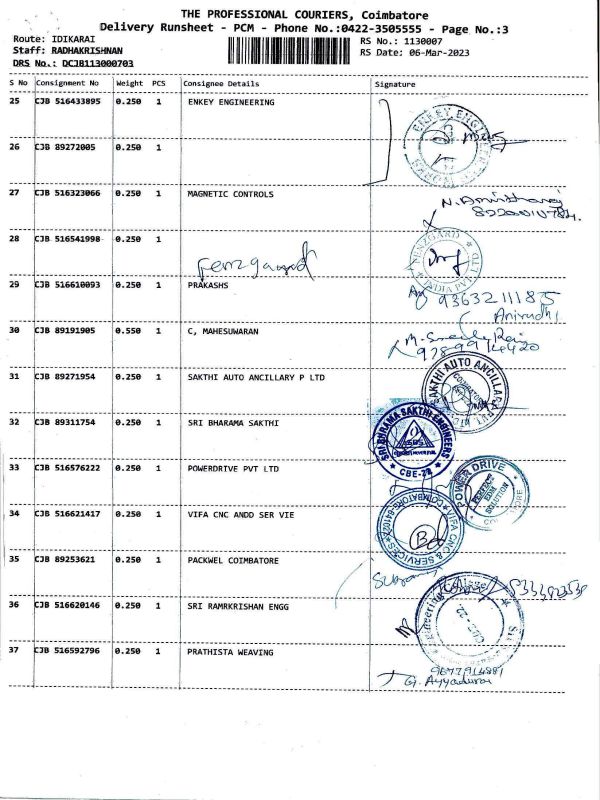 THE PROFESSIONAL COURIERS, Coimbatore
Delivery Runsheet - PCM - Phone No.:0422-3505555 - Page No.:3
Route: IDIKARAI RS No.: 1130007
Staff: RADHAKRISHNAN RS Date: 06-Mar-2023
DRS No.: DCJB113000703
S No Consignment No Weight PCS Consignee Details Signature
25 CJB 516433895 0.250 1 ENKEY ENGINEERING
26 CJB 89272005 0.250 1
27 CJB 516323066 0.250 1 MAGNETIC CONTROLS
28 CJB 516541998 0.250 1
29 CJB 516610093 0.250 1 PRAKASHS
9363211185
Anirudh
30 CJB 89191905 0.550 1 C, MAHESUWARAN
31 CJB 89271954 0.250 1 SAKTHI AUTO ANCILLARY P LTD
SAKTHI AUTO ANCILLARY
32 CJB 89311754 0.250 1 SRI BHARAMA SAKTHI
SRI BHRAMA SAKTHI ENGINEERS
CBE-22
33 CJB 516576222 0.250 1 POWERDRIVE PVT LTD
POWER DRIVE
34 CJB 516621417 0.250 1 VIFA CNC ANDD SER VIE
VIFA CNC & SERVICES
35 CJB 89253621 0.250 1 PACKWEL COIMBATORE
36 CJB 516620146 0.250 1 SRI RAMRKRISHAN ENGG
37 CJB 516592796 0.250 1 PRATHISTA WEAVING
9677914881
G. Ayyadurai